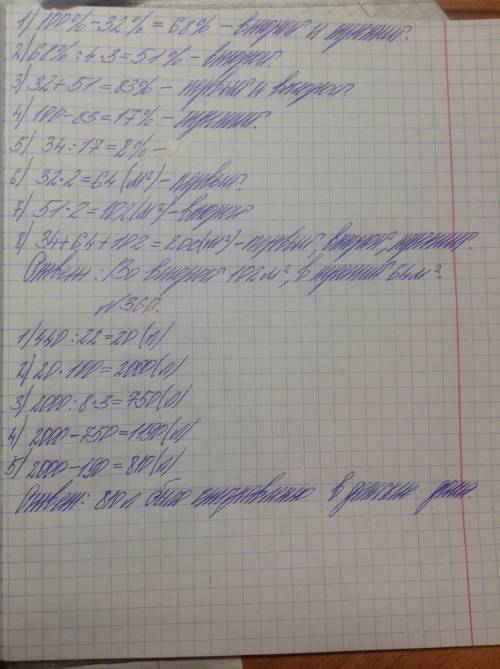 1) 100% - 32% = 68% - второй и третий.
2) 68% : 4 · 3 = 51% - второй.
3) 32 + 51 = 83% - первый и второй
4) 100 - 83 = 17% - третий.
5) 34 : 17 = 2% -
6) 32 · 2 = 64 (м²) - первый.
7) 51 · 2 = 102 (м²) - второй
8) 34 + 64 + 102 = 200 (м²) - первый, второй, третий.
Ответ: Во второй 102 м², в третий 64 м².
№ 360.
1) 440 : 22 = 20 (л)
2) 20 · 100 = 2000 (л)
3) 2000 : 8 · 3 = 750 (л)
4) 2000 - 750 = 1190 (л)
5) 2000 - 190 = 810 (л)
Ответ: 810 л было отправлено в детские дома